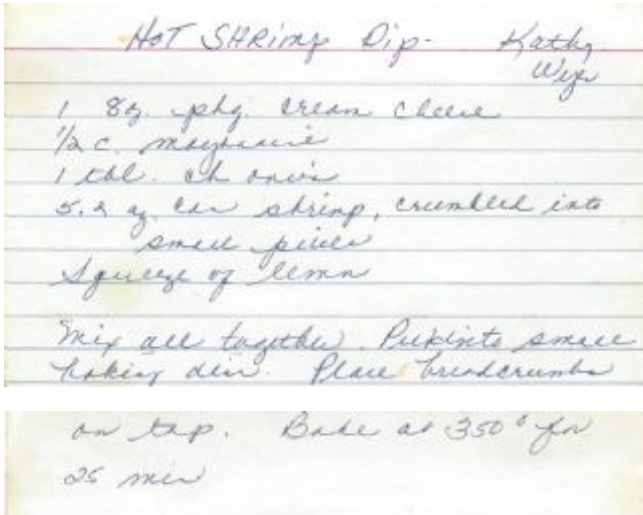 HOT SHRimp Dip- Kathy
1 8 oz. pkg. cream cheese
1/2 c. mayonaise
1 tbl. ch onion
5.2 oz. can shrimp, crumbled into
small pieces
Squeeze of lemon
Mix all together. Put into small
baking dish. Place breadcrumbs
on top. Bake at 350° for
25 min